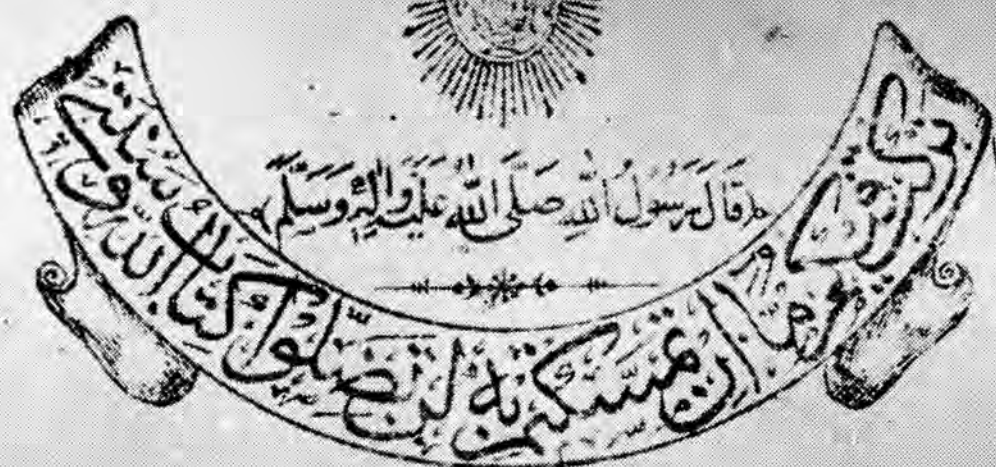 قَالَ رَسُولُ اللهِ صَلَّى اللهُ عَلَيْهِ وَاٰلِهٖ وَسَلَّمَ
تركت فيكم ما ان تمسكتم به لن تضلوا كتاب الله و